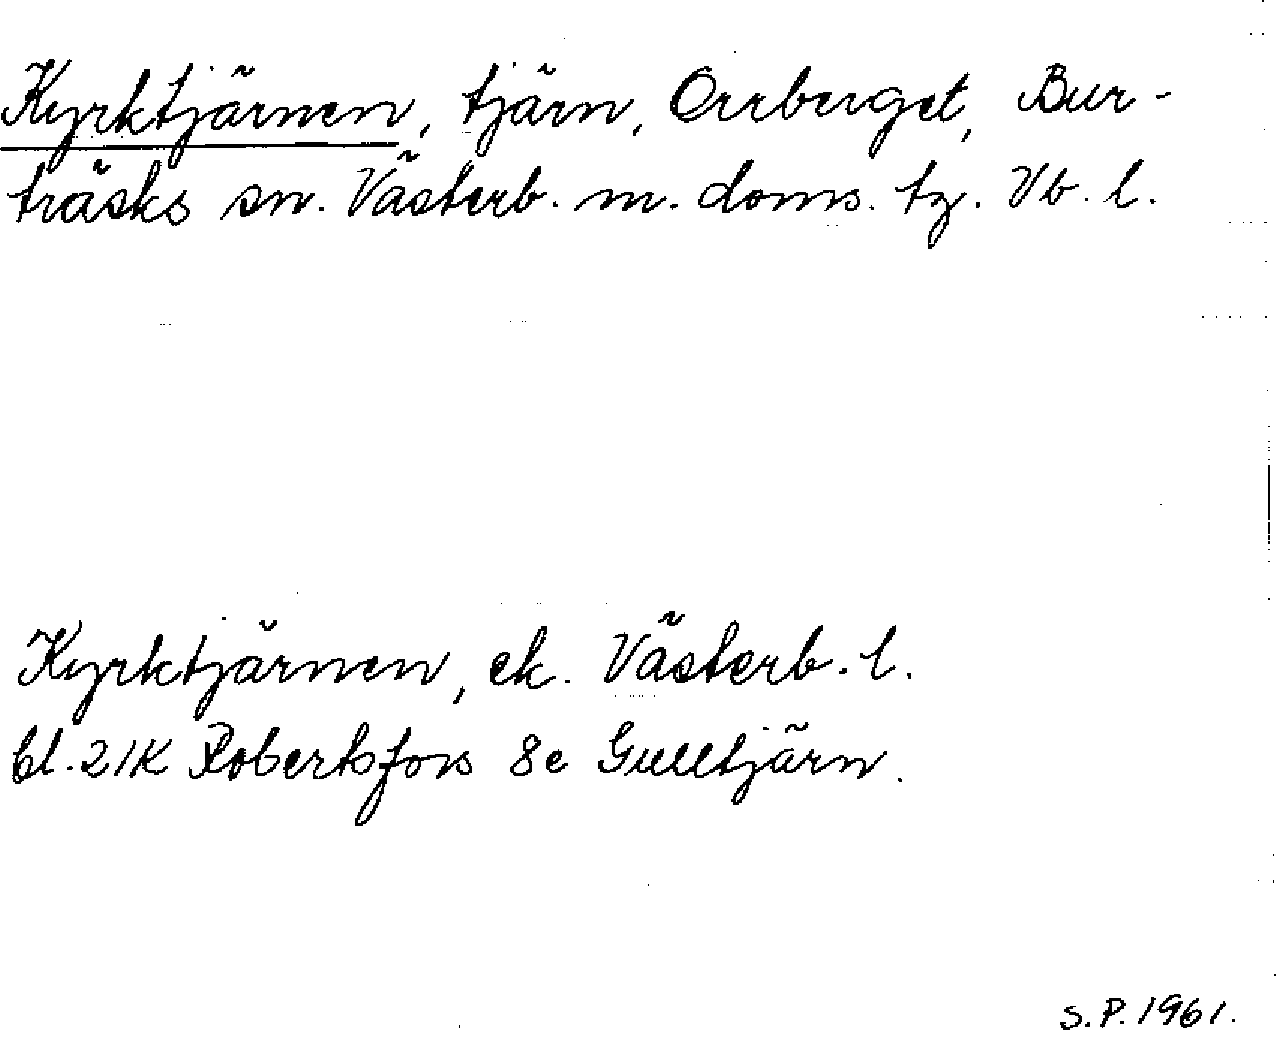 Kyrktjärnen, tjärn, Orrberget, Bur-
träsks sn. Västerb. m. doms. tg. Vb. l.
Kyrktjärnen, ek. Västerb. l.
bl. 21K Robertsfors 8e Gulltjärn.
S.P. 1961.